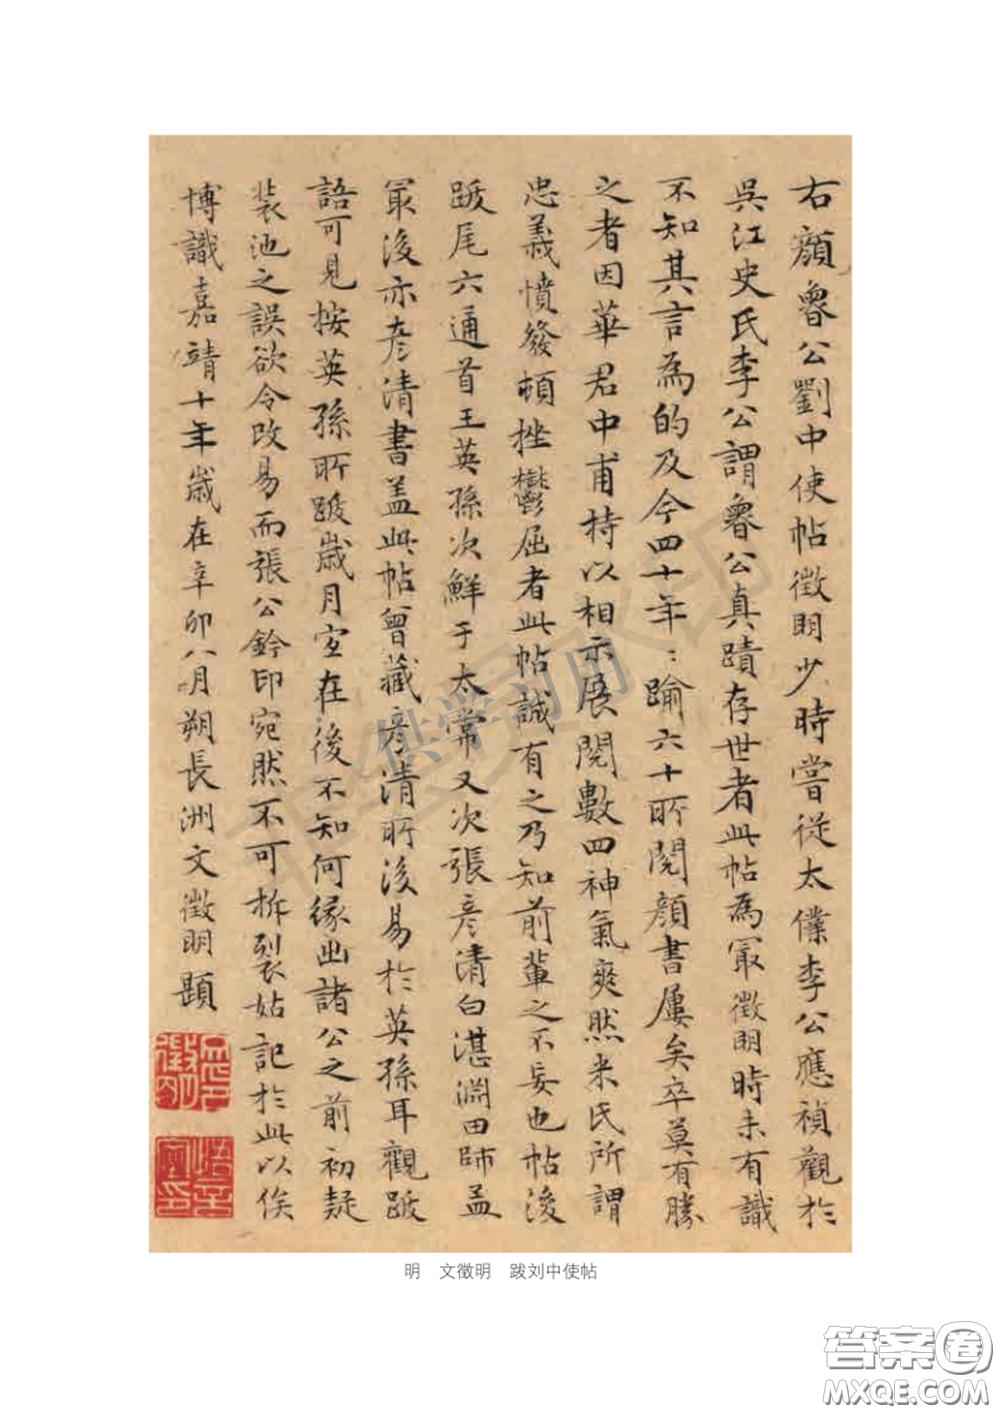 右顏魯公劉中使帖徵明少時嘗從太僕李公應禎觀於
吳江史氏李公謂魯公真蹟存世者此帖為冣徵明時未有識
不知其言為的及今四十年〻踰六十所閱顏書屢矣卒莫有勝
之者因華君中甫持以相示展閱數四神氣爽然米氏所謂
忠義憤發頓挫鬱屈者此帖誠有之乃知前輩之不妄也帖後
跋尾六通首王英孫次鮮于太常又次張彥清白湛淵田師孟
冣後亦彥清書盖此帖曾藏彥清所後易於英孫耳觀跋
語可見按英孫所跋歲月宜在後不知何緣出諸公之前初疑
裝池之誤欲令改易而張公鈐印宛然不可拆裂姑記於此以俟
博識嘉靖十年歲在辛卯八月朔長洲文徵明題
明 文徵明 跋刘中使帖
仅供学习用
答案圈
MXQE.COM